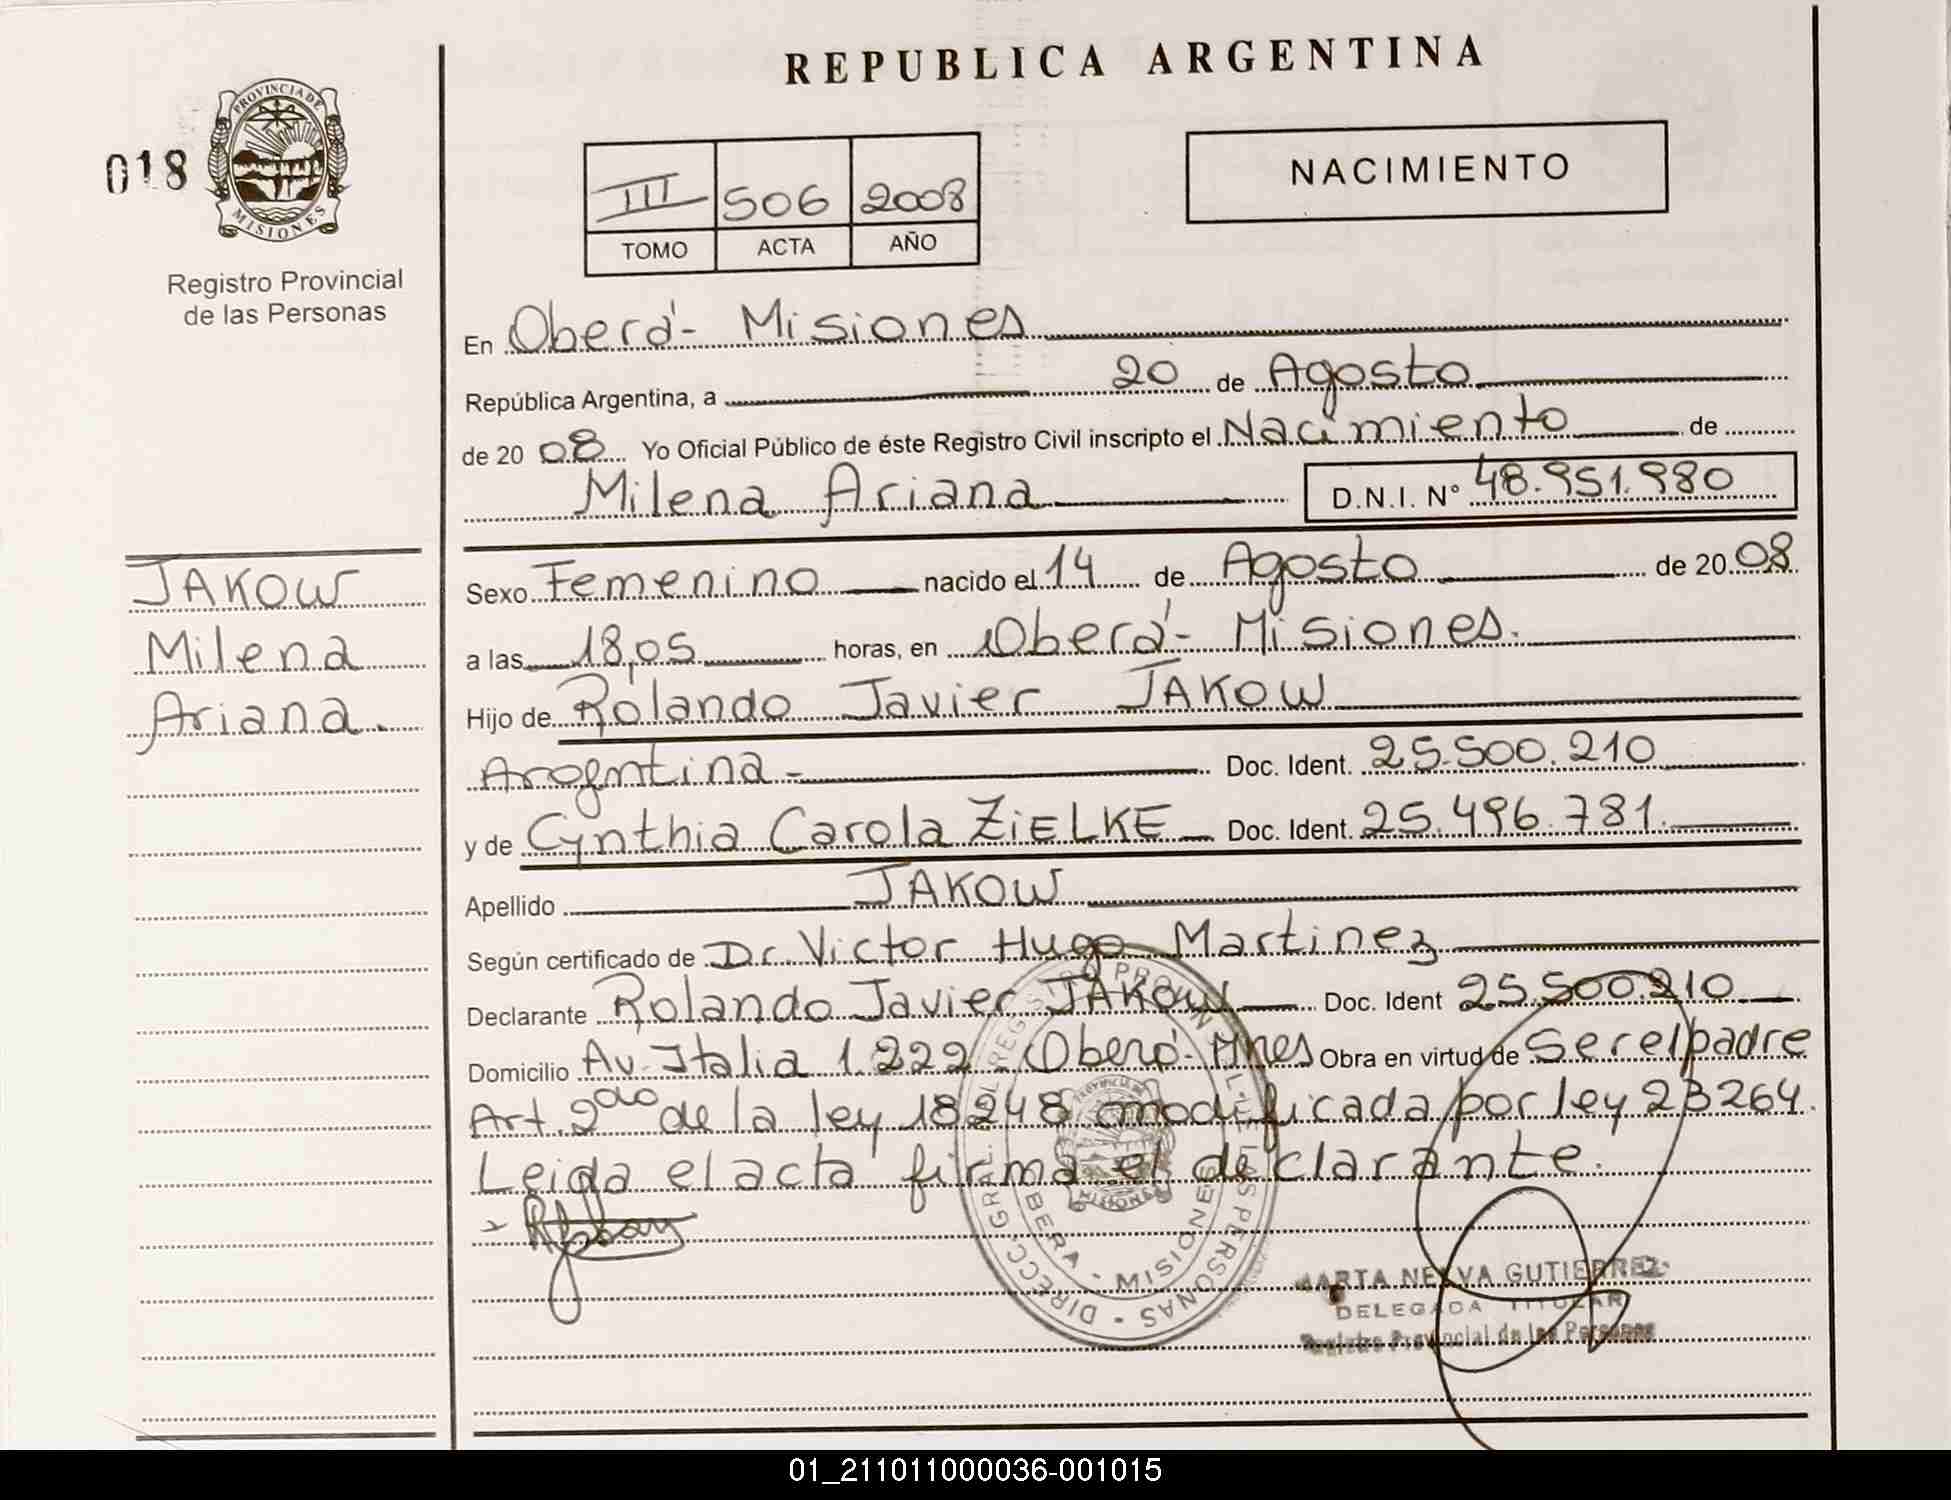 REPUBLICA ARGENTINA
018
PROVINCIA DE
MISIONES
Registro Provincial
de las Personas
III 506 2008
TOMO ACTA AÑO
NACIMIENTO
En Oberá - Misiones
República Argentina, a 20 de Agosto
de 2008 Yo Oficial Público de éste Registro Civil inscripto el Nacimiento de
Milena Ariana D.N.I. N° 48.951.980
JAKOW
Milena
Ariana.
Sexo Femenino nacido el 14 de Agosto de 2008
a las 18,05 horas, en Oberá - Misiones.
Hijo de Rolando Javier JAKOW
Argentina - Doc. Ident. 25.500.210
y de Cynthia Carola ZiELKE Doc. Ident. 25.496.781.
Apellido JAKOW
Según certificado de Dr. Victor Hugo Martinez
Declarante Rolando Javier JAKOW Doc. Ident 25.500.210
Domicilio Av. Italia 1.222 Oberá - Mnes Obra en virtud de Ser el padre
Art. 2do de la ley 18248 modificada por ley 23264.
Leida el acta firma el declarante.
DIRECC. GRAL. REGISTRO PROVINCIAL DE LAS PERSONAS
OBERA - MISIONES
PROVINCIA DE
MISIONES
MARTA NELVA GUTIERREZ
DELEGADA TITULAR
Registro Provincial de las Personas
01_211011000036-001015